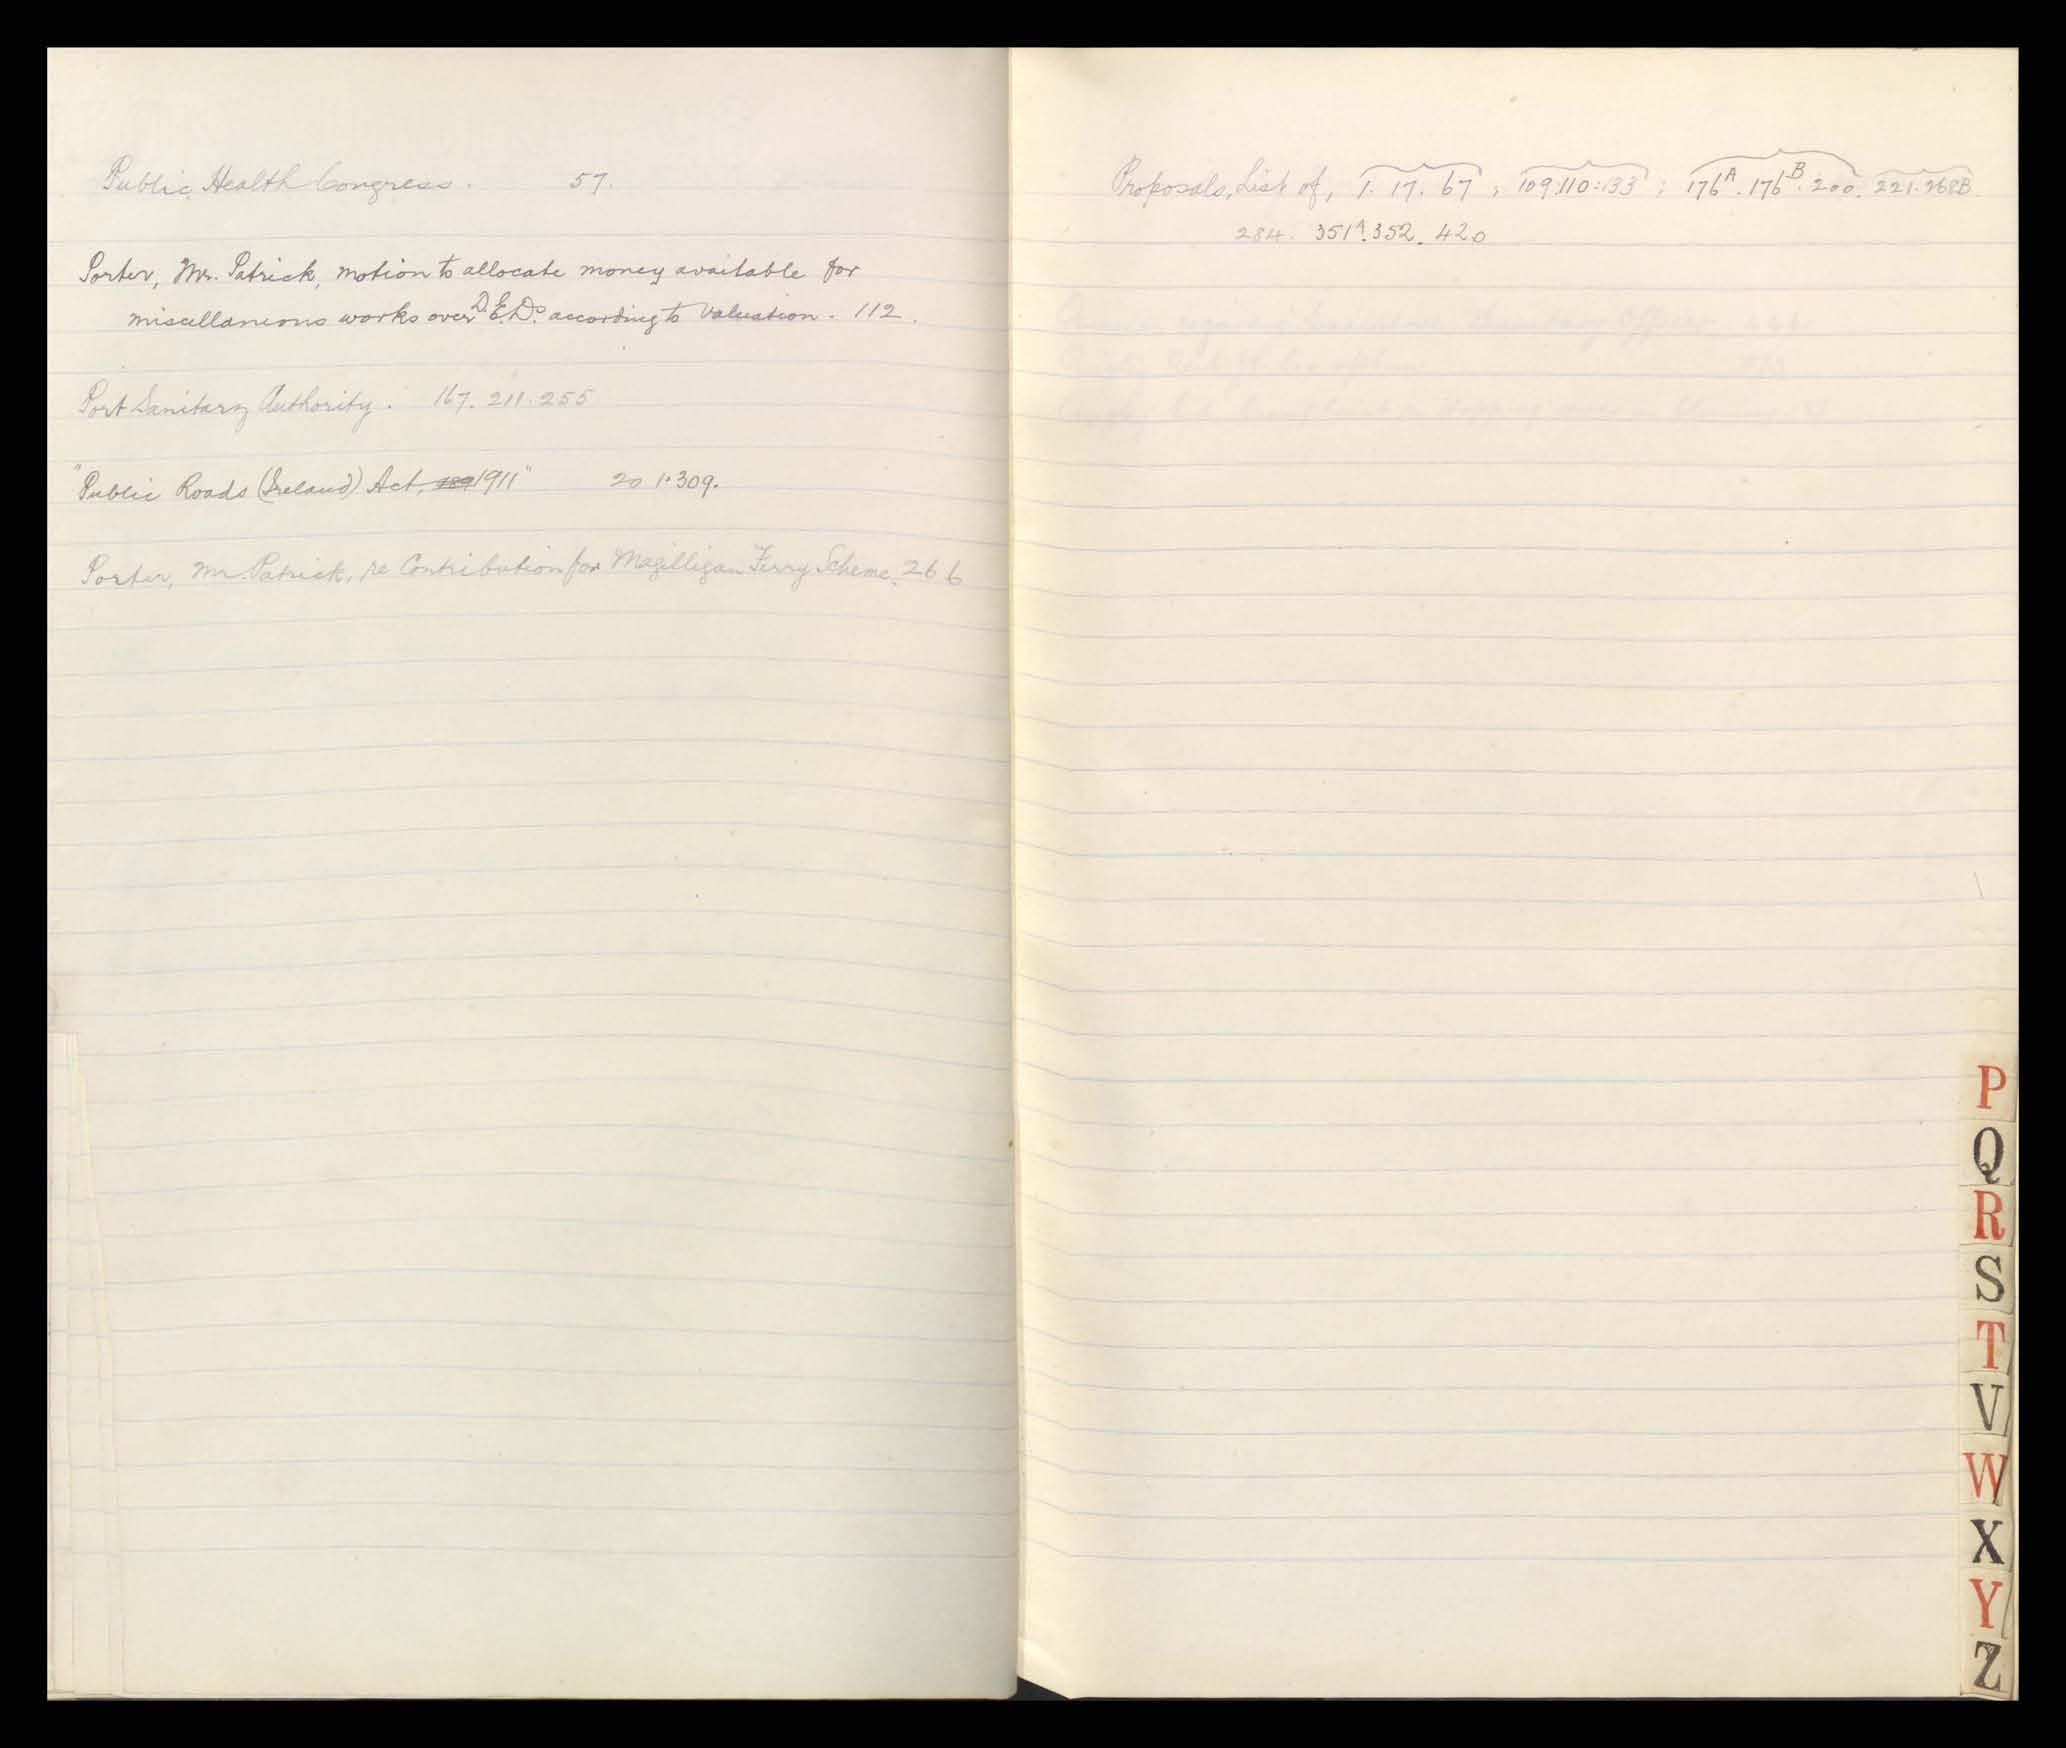 Public Health Congress. 57.
Porter, Mr. Patrick, motion to allocate money available for
miscellaneous works over D.E.Ds. according to Valuation. 112.
Port Sanitary Authority. 167. 211. 255
"Public Roads (Ireland) Act, 1911" 201.309.
Porter, Mr. Patrick, re Contribution for Magilligan Ferry Scheme. 266
Proposals, List of, 1. 17. 67; 109.110:133; 176A. 176B. 200. 221. 268B.
284. 351A. 352. 420
P
Q
R
S
T
V
W
X
Y
Z